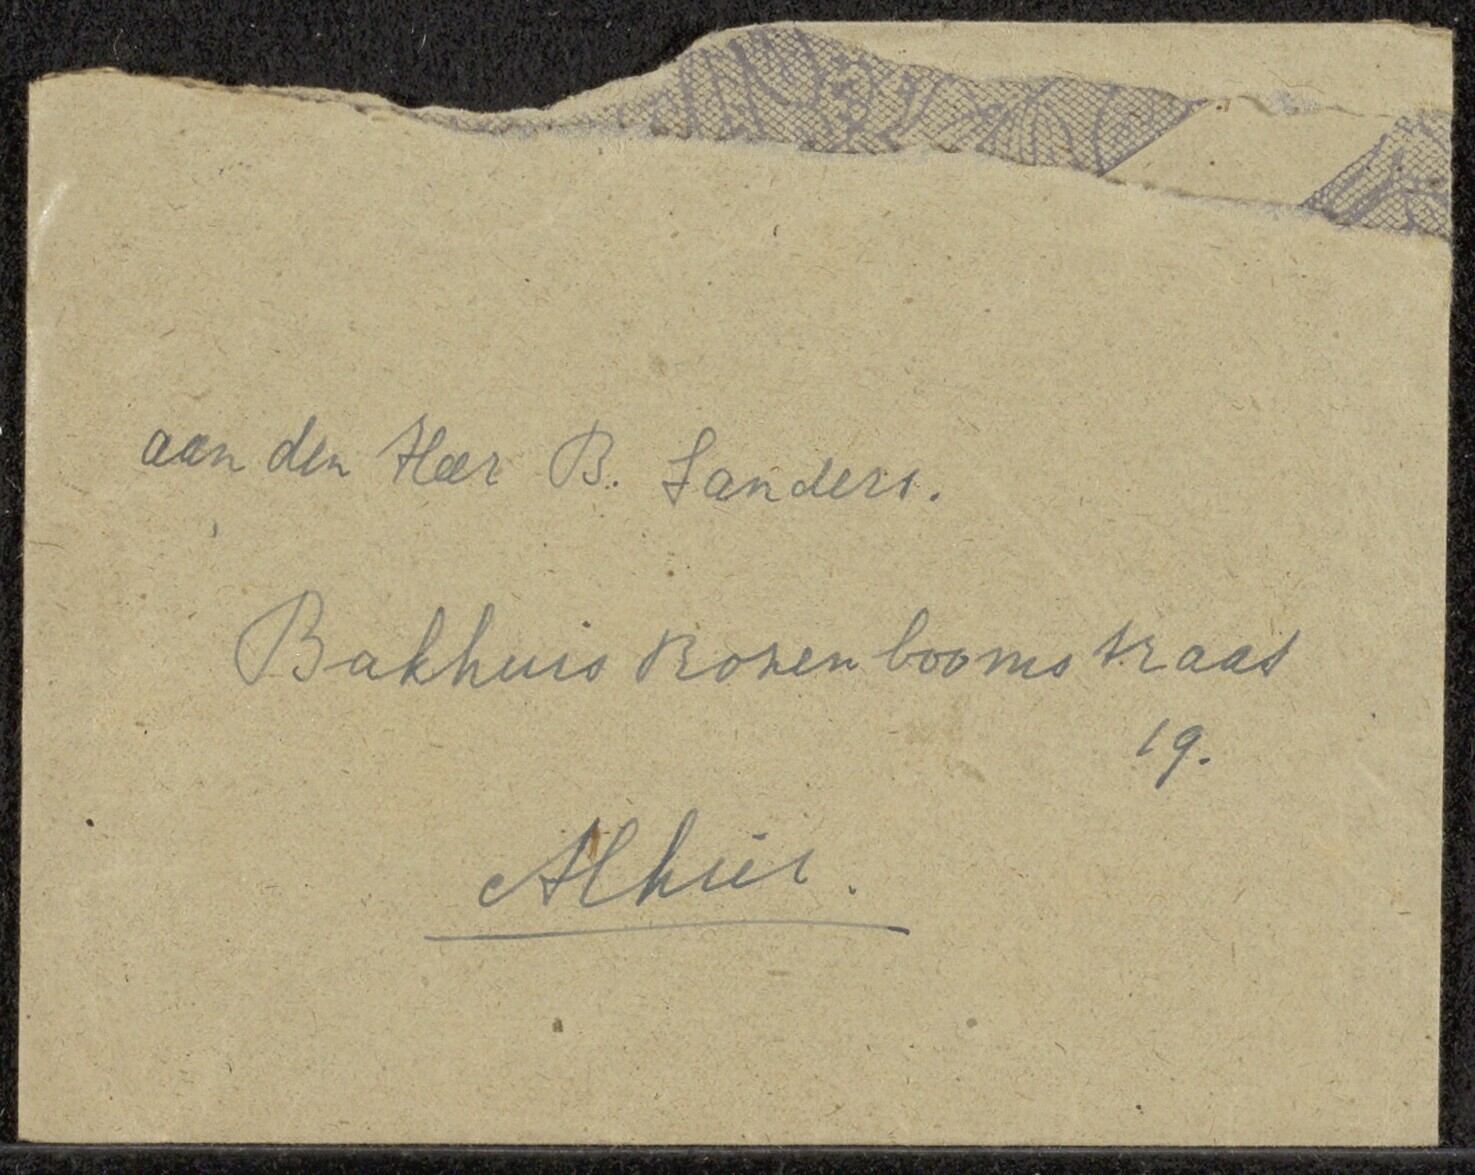 aan den Heer B. Sanders.
Bakhuis Rozenboomstraat
19.
Alhier.